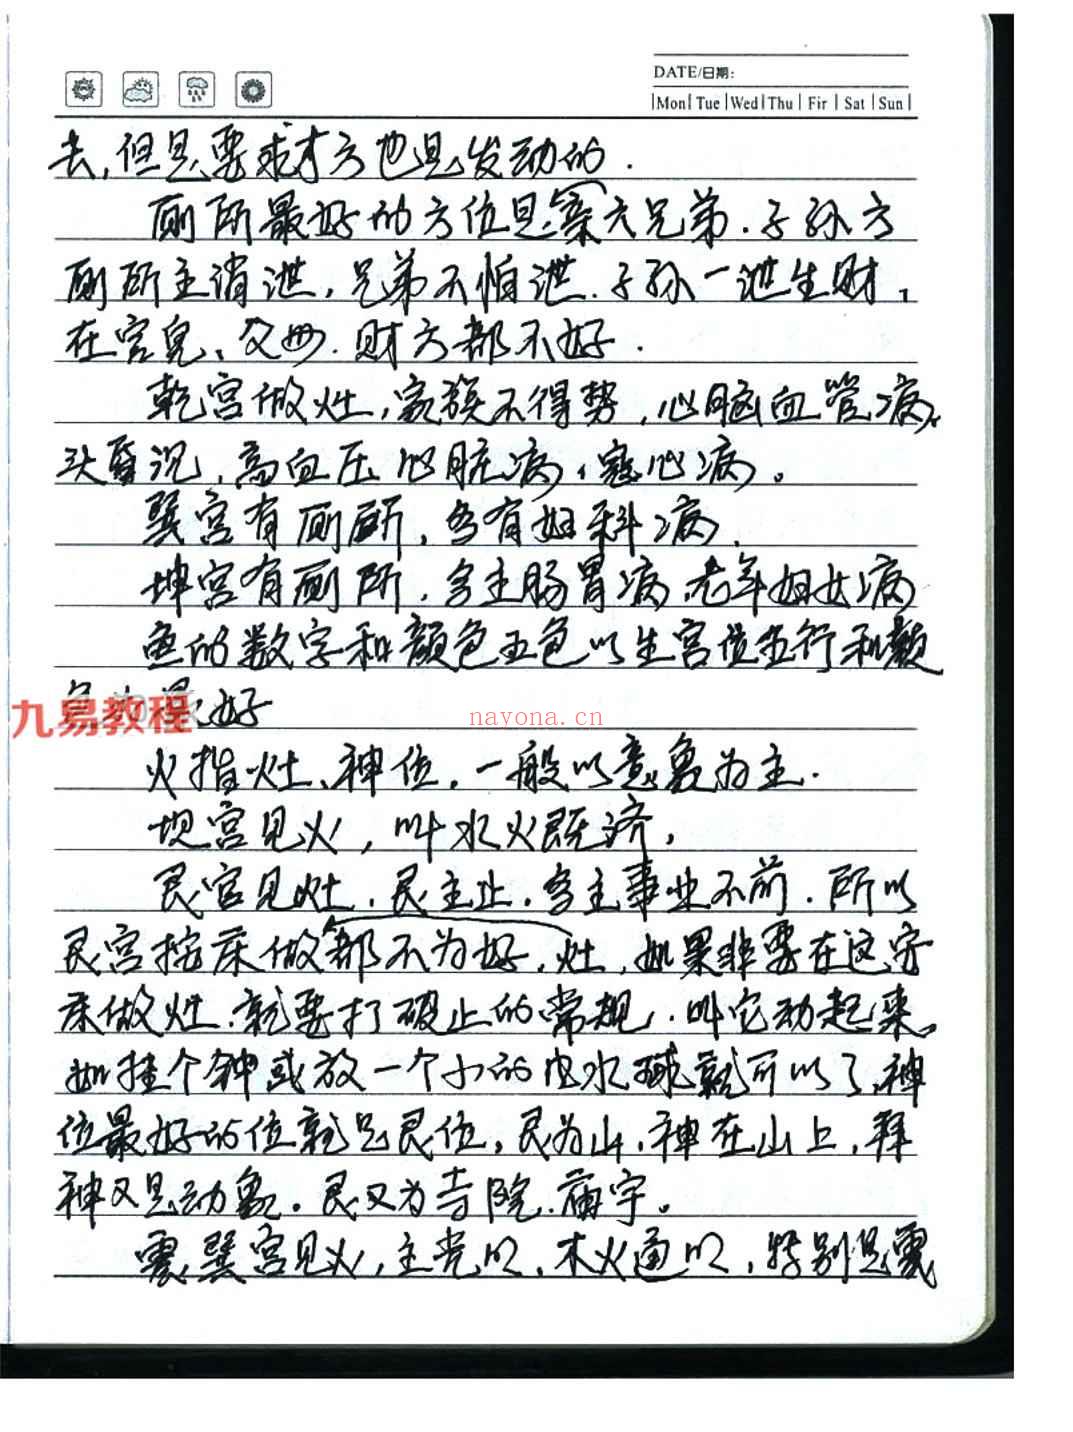 DATE/日期:
Mon Tue Wed Thu Fir Sat Sun
去,但是要求才方也是发动的.
厕所最好的方位是案六兄弟.子孙方
厕所主消泄,兄弟不怕泄.子孙一泄生财,
在官鬼、父母.财方都不好.
乾宫做灶,家族不得势,心脑血管病,
头昏沉,高血压心脏病,冠心病。
巽宫有厕所,多有妇科病.
坤宫有厕所.多主肠胃病.老年妇女病
鱼的数字和颜色五色以生宫位五行和颜
色为最好
九易教程
nayona.cn
火指灶、神位,一般以意象为主.
坎宫见火,叫水火既济,
艮宫见灶.艮主止.多主事业不前.所以
艮宫按床做都不为好,灶,如果非要在这安
床做灶.就要打破止的常规.叫它动起来。
如挂个钟或放一个小的电水罐就可以了,神
位最好的位就是艮位,艮为山,神在山上,拜
神又是动象.艮又为寺院.庙宇。
震.巽宫见火,主光明,木火通明,特别是震